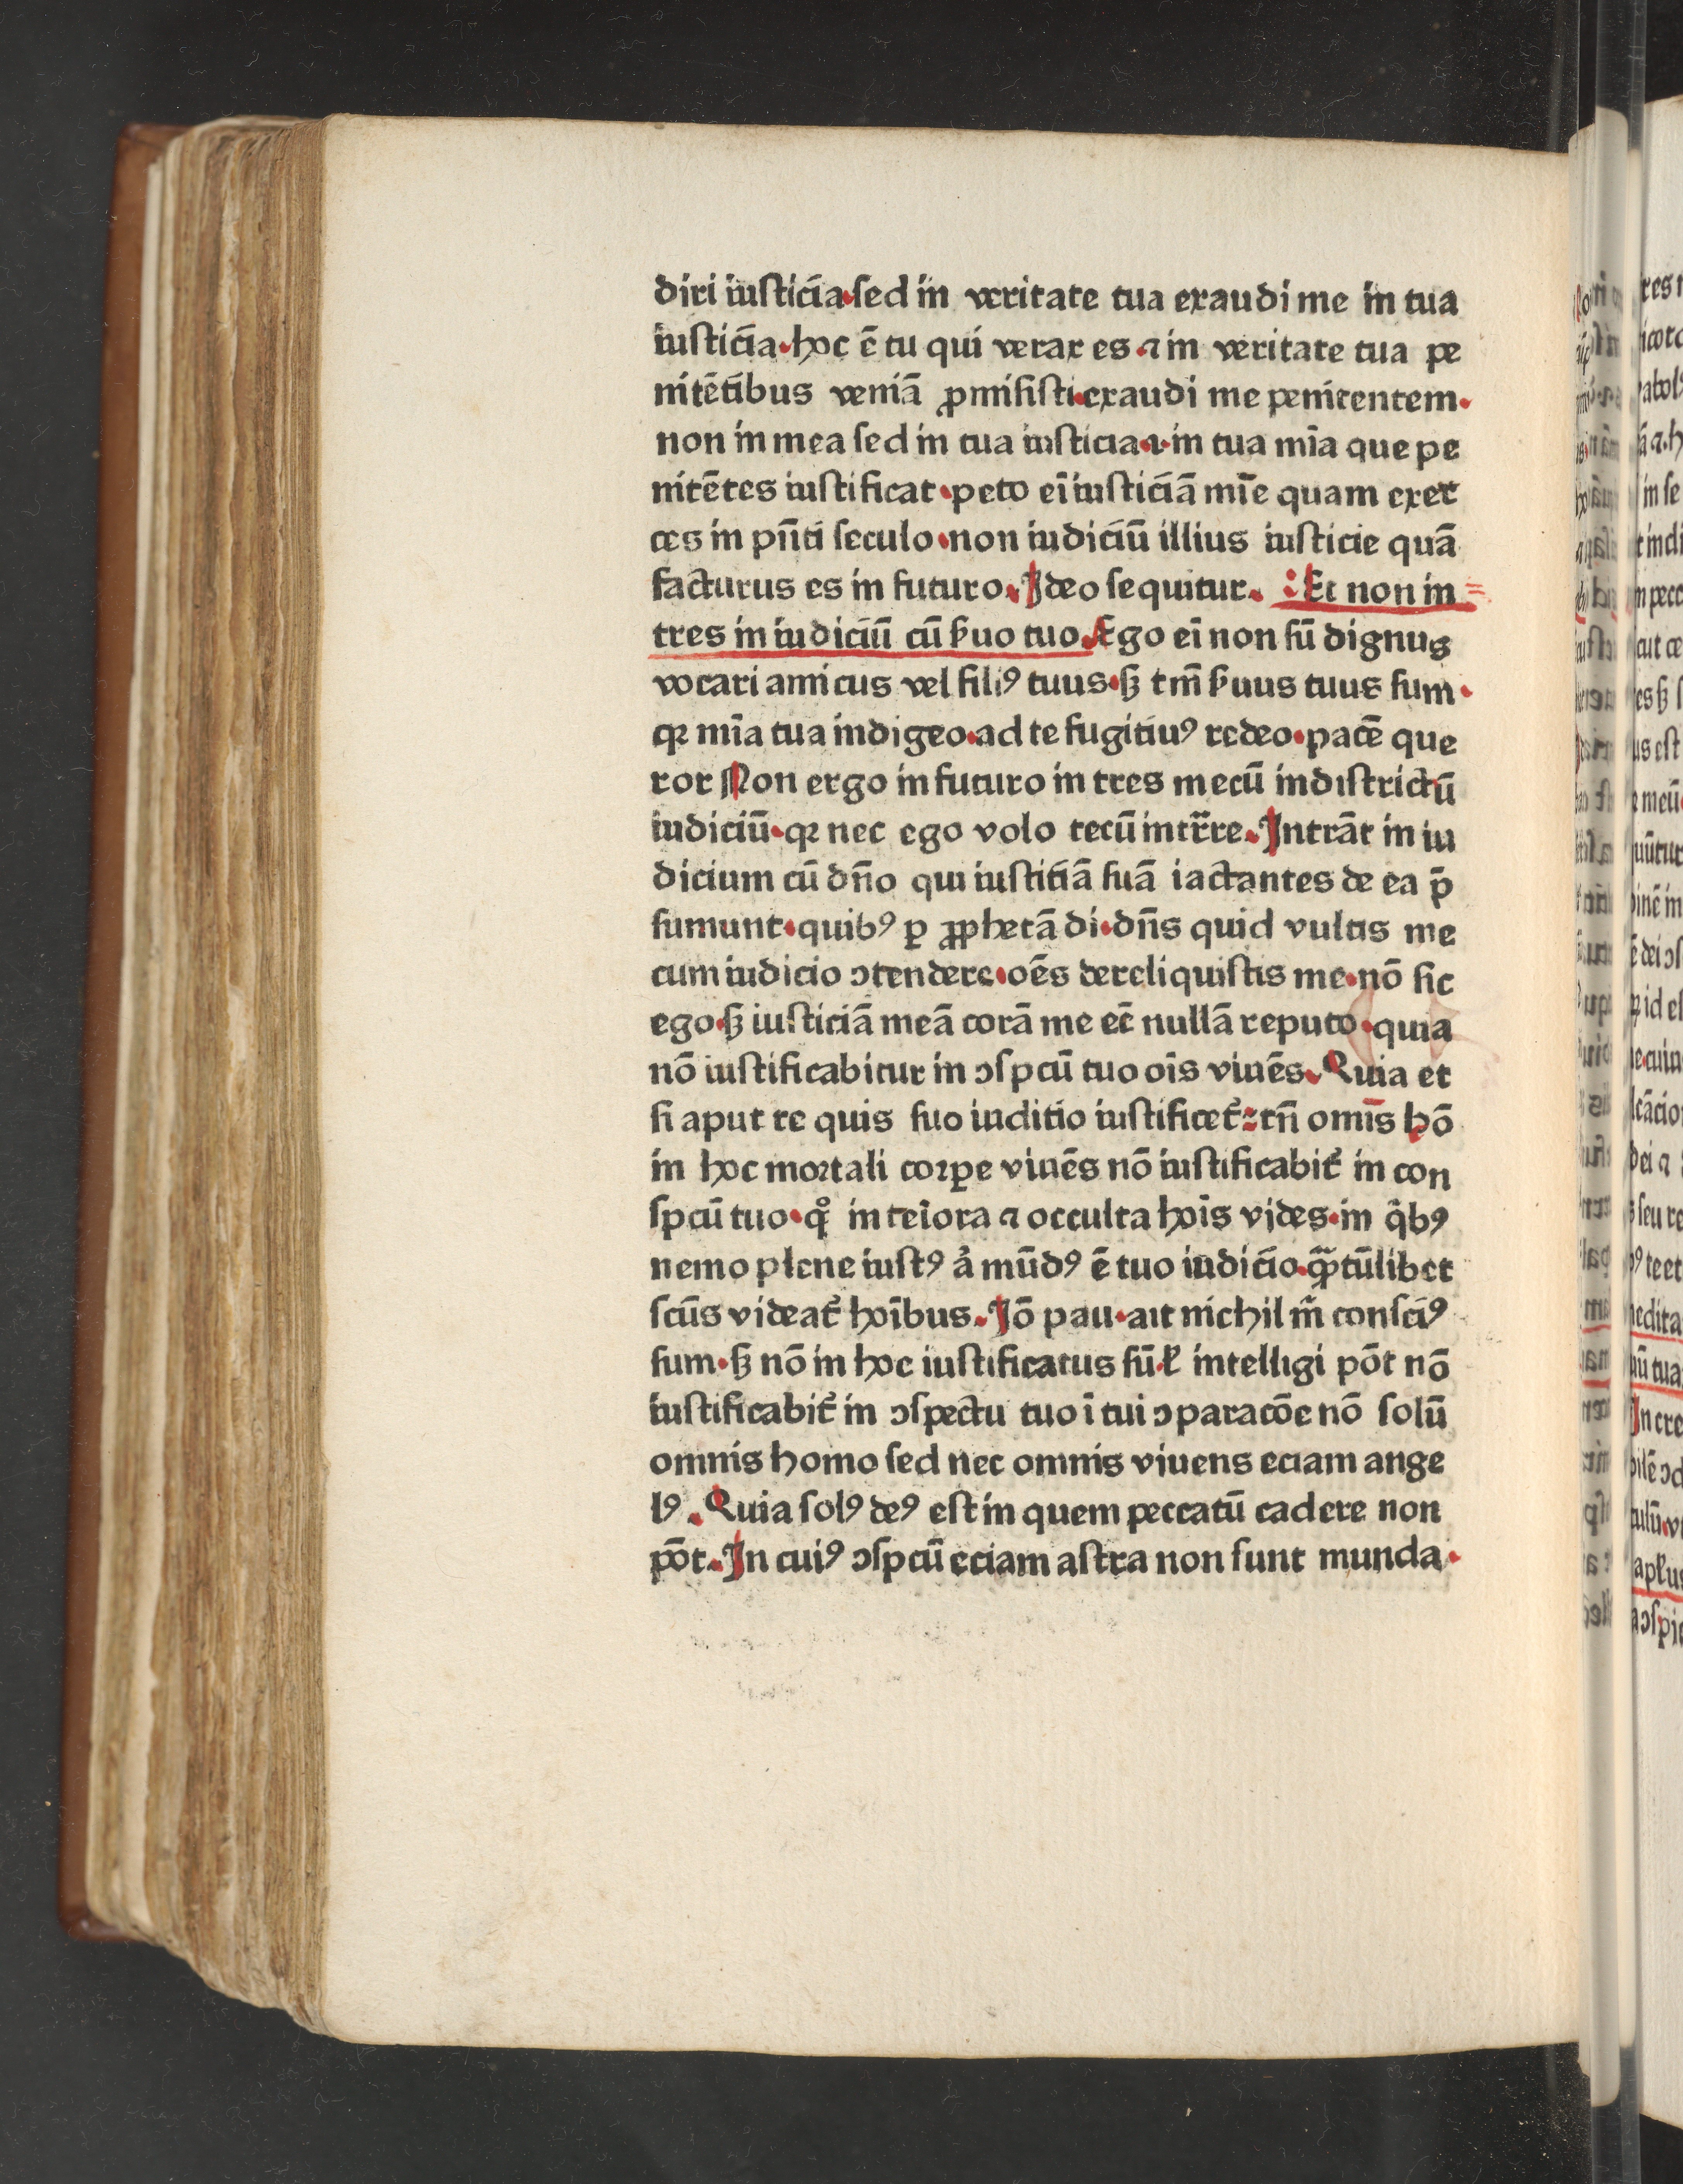 diri iusticia·sed in veritate tua exaudi me in tua
iusticia·hoc ē tu qui verax es·⁊ in veritate tua pe
nitētibus veniā ꝓmisisti·exaudi me penitentem·
non in mea sed in tua iusticia·⁊·in tua mīa que pe
nitētes iustificat·peto ei̅ iusticiā mīe quam exer
ces in pn̄ti seculo·non iudiciū illius iusticie quā
facturus es in futuro. Ideo sequitur. :Et non in=
tres in iudiciū cū ẜuo tuo. Ego ei̅ non sū dignus
vocari amicus vel filiꝰ tuus·sꝫ tm̄ ẜuus tuus sum·
qꝛ mīa tua indigeo·ad te fugitiuꝰ redeo·pacē que
ror Non ergo in futuro intres mecū in districtū
iudiciū·qꝛ nec ego volo tecū intr̄re. Intrāt in iu
dicium cū dn̄o qui iustitiā suā iactantes de ea p̄
sumunt·quibꝰ ꝑ ꝓphetā di·dn̄s quid vultis me
cum iudicio ↄtendere·oēs dereliquistis me·nō sic
ego·sꝫ iusticiā meā corā me ec̄ nullā reputo·quia
nō iustificabitur in ↄspcū tuo oīs viuēs. Quia et
si aput te quis suo iuditio iustificet᷑:tn̄ omīs hō
in hoc mortali corꝑe viuēs nō iustificabit᷑ in con
spcū tuo·qͦ interiora ⁊ occulta hoīs vides·in qͥbꝰ
nemo plene iustꝰ aͨ mūdꝰ ē tuo iudicio·qꝫtūlibet
scūs videat᷑ hoībus. Iō pau·ait nichil m̄ consciꝰ
sum·sꝫ nō in hoc iustificatus sū·ł intelligi pōt nō
iustificabit᷑ in ↄspectu tuo ī tui ↄparacōe nō solū
omnis homo sed nec omnis viuens eciam ange
lꝰ. Quia solꝰ deꝰ est in quem peccatū cadere non
pōt. In cuiꝰ ↄspcū eciam astra non sunt munda·